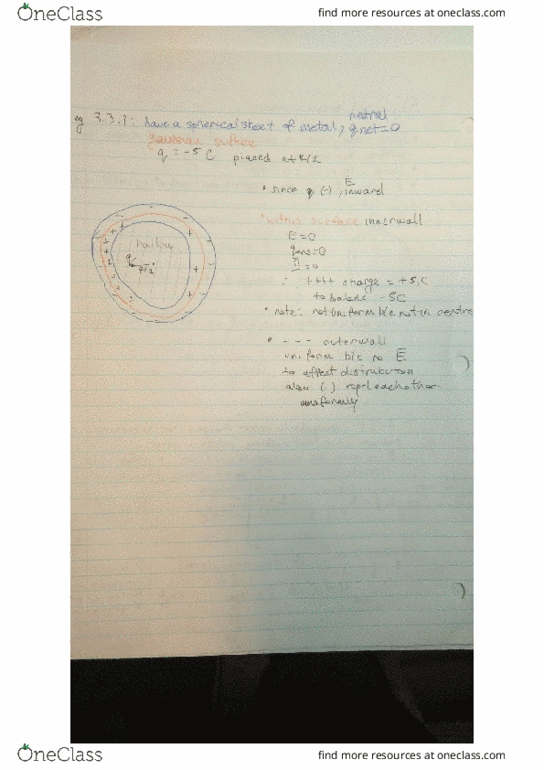 OneClass
find more resources at oneclass.com
neutral
eg 3.3.1: have a spherical sheet of metal, qnet=0
gaussian surface
q = -5 C placed at R/2
• since q (-), E inward
• within surface inner wall
E=0
qenc=0
=0
∴ +++ charge = +5C
to balance -5C
• note: not uniform b/c not in centre
• - - - outer wall
uniform b/c no E
to affect distribution
also (-) repel each other
uniformly
q
R/2
OneClass
find more resources at oneclass.com